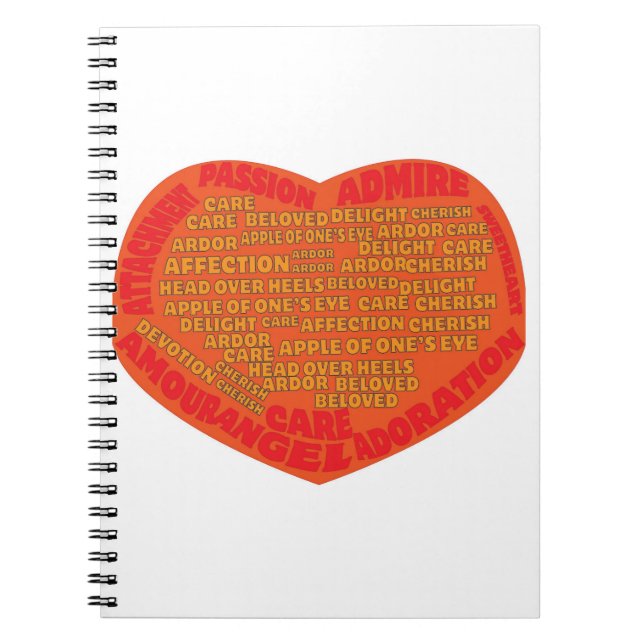 PASSION ADMIRE
ATTACHMENT
SWEETHEART
CARE
CARE BELOVED DELIGHT CHERISH
ARDOR APPLE OF ONE'S EYE ARDOR CARE
AFFECTION ARDOR DELIGHT CARE
ARDOR ARDOR CHERISH
HEAD OVER HEELS BELOVED DELIGHT
APPLE OF ONE'S EYE CARE CHERISH
DELIGHT CARE AFFECTION CHERISH
ARDOR
CARE APPLE OF ONE'S EYE
DEVOTION
HEAD OVER HEELS
CHERISH ARDOR BELOVED
CHERISH BELOVED
AMOUR ANGEL
CARE
ADORATION